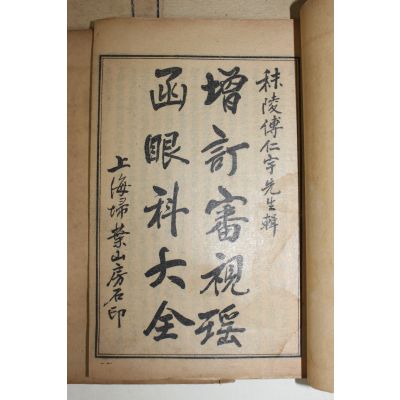 秣陵傅仁宇先生輯
增訂審視瑶
函眼科大全
上海埽葉山房石印